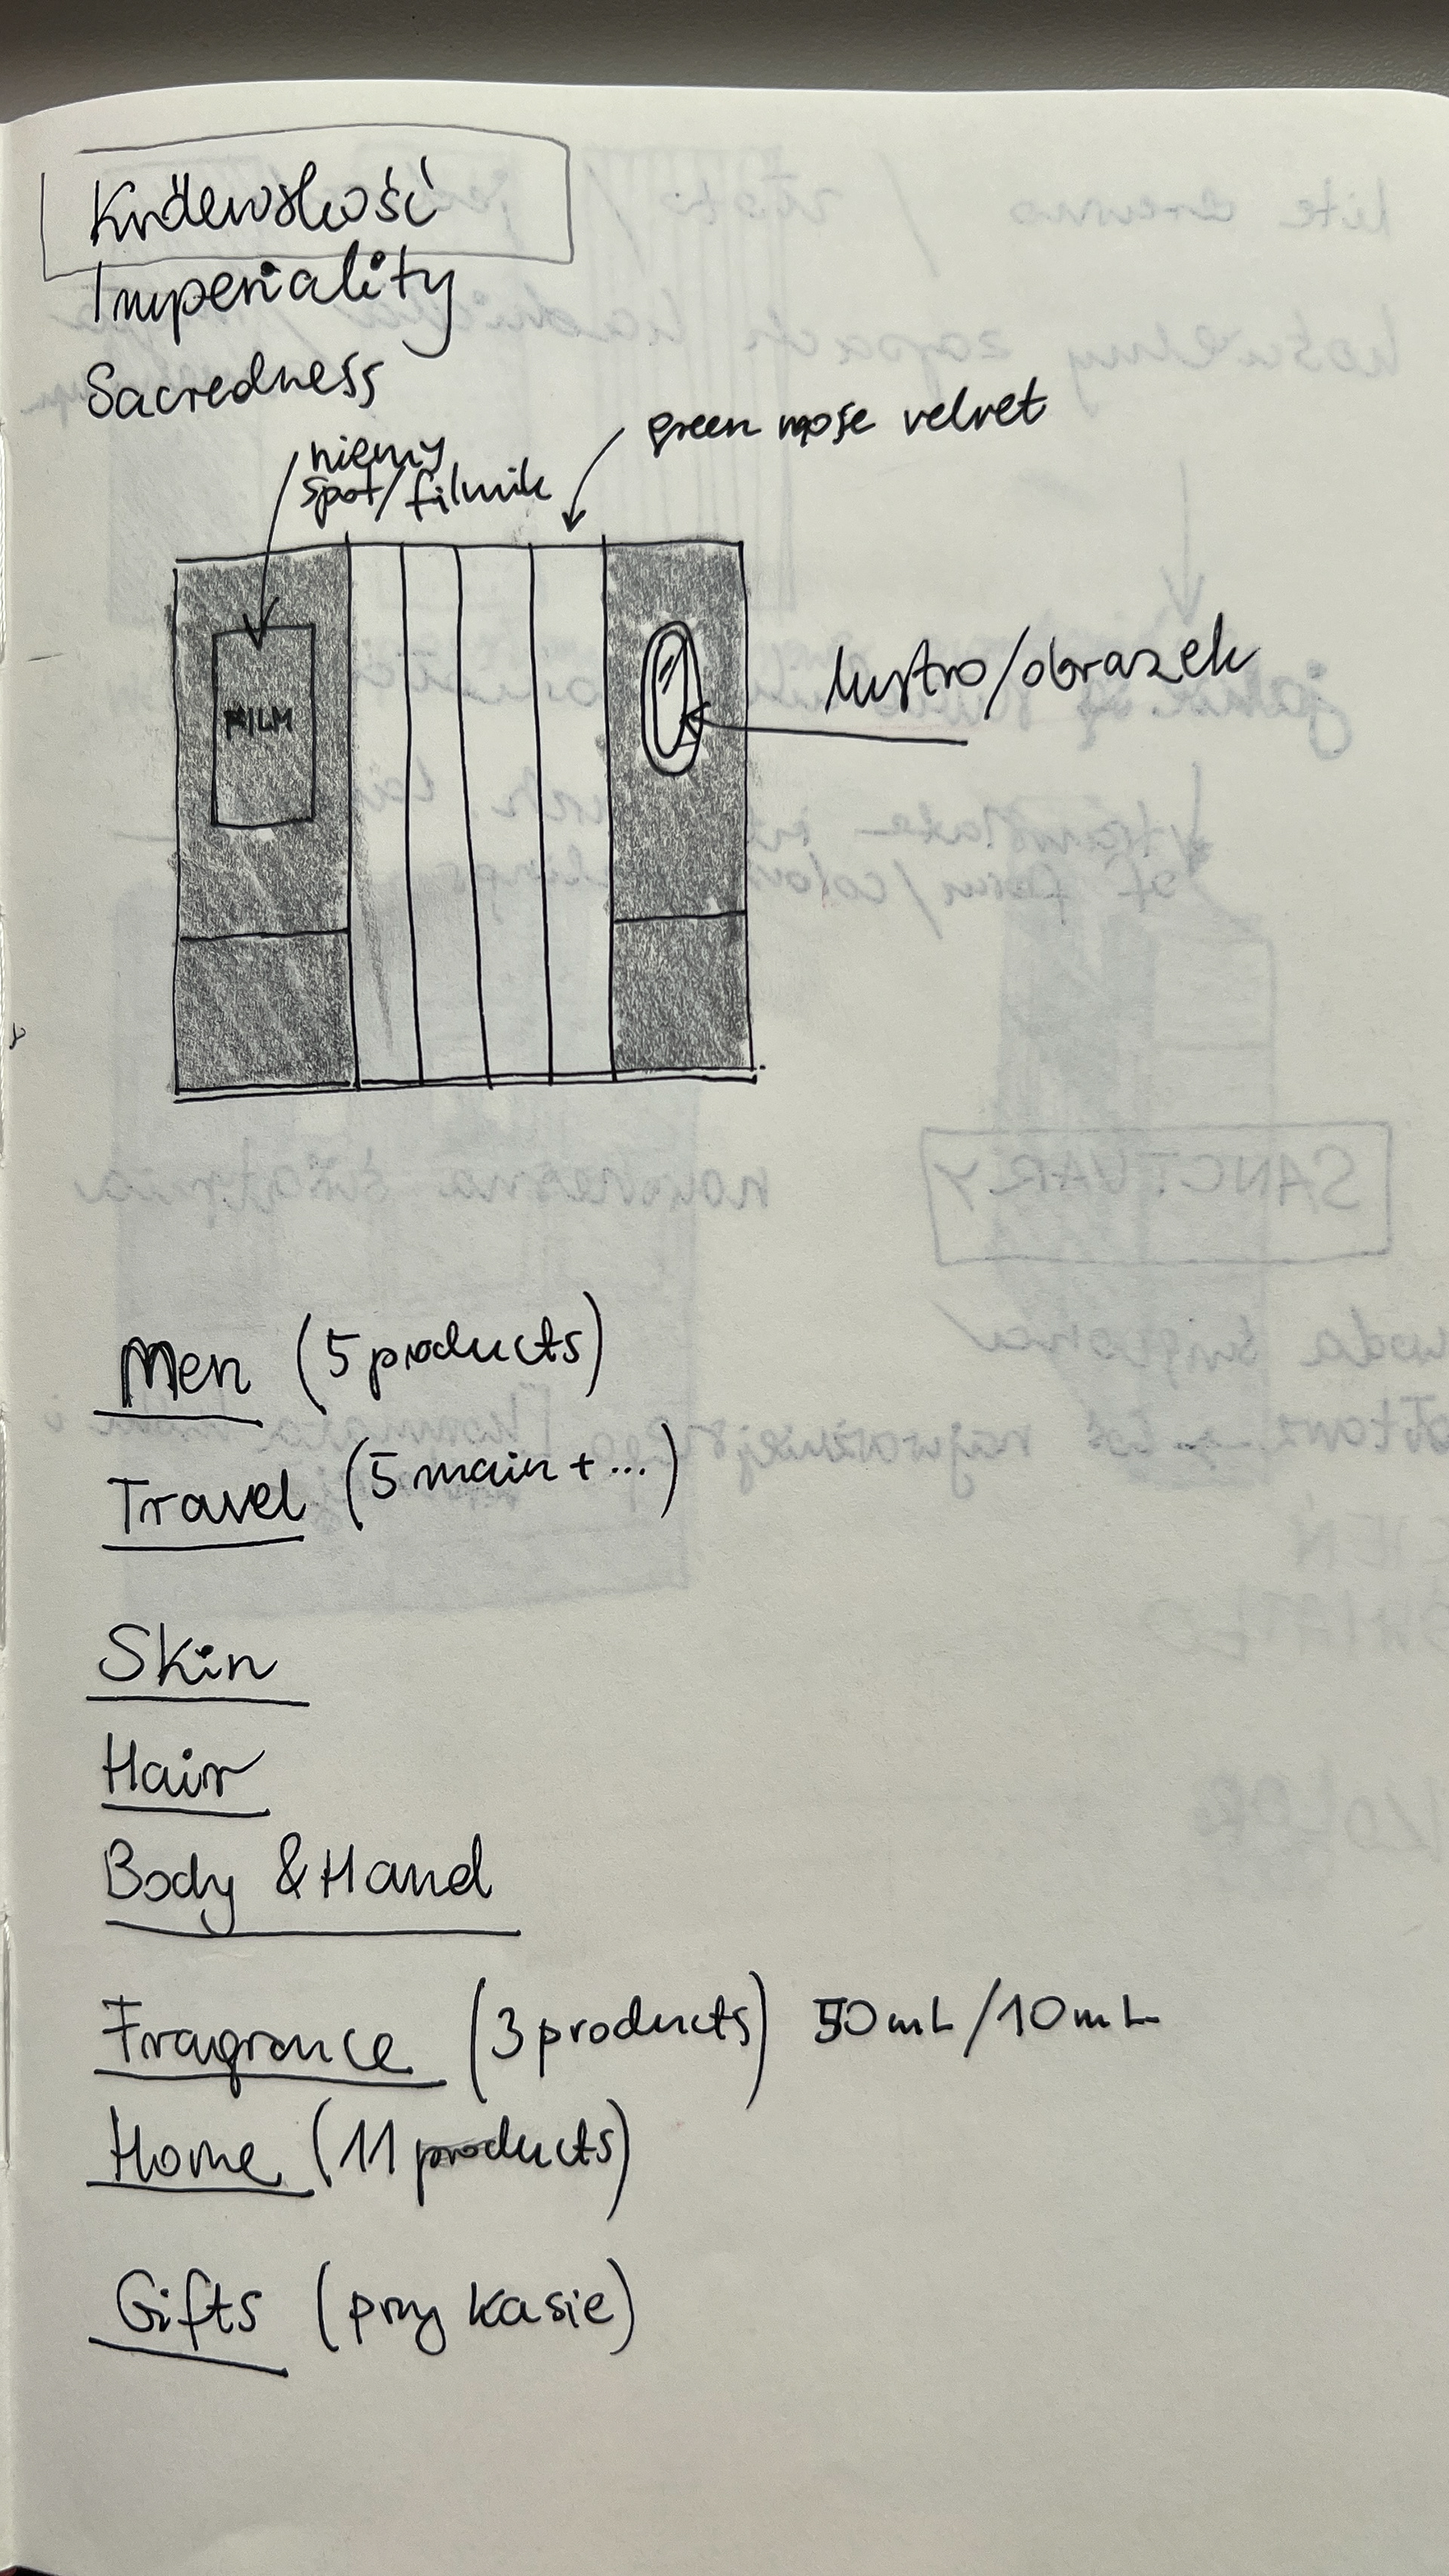 Królewskość
Imperiality
Sacredness
niemy
spot/filmik
green mose velvet
FILM
lustro/obrazek
Men (5 products)
Travel (5 main + ...)
Skin
Hair
Body & Hand
Fragrance (3 products) 50mL/10mL
Home (11 products)
Gifts (przy kasie)
SANCTUARY